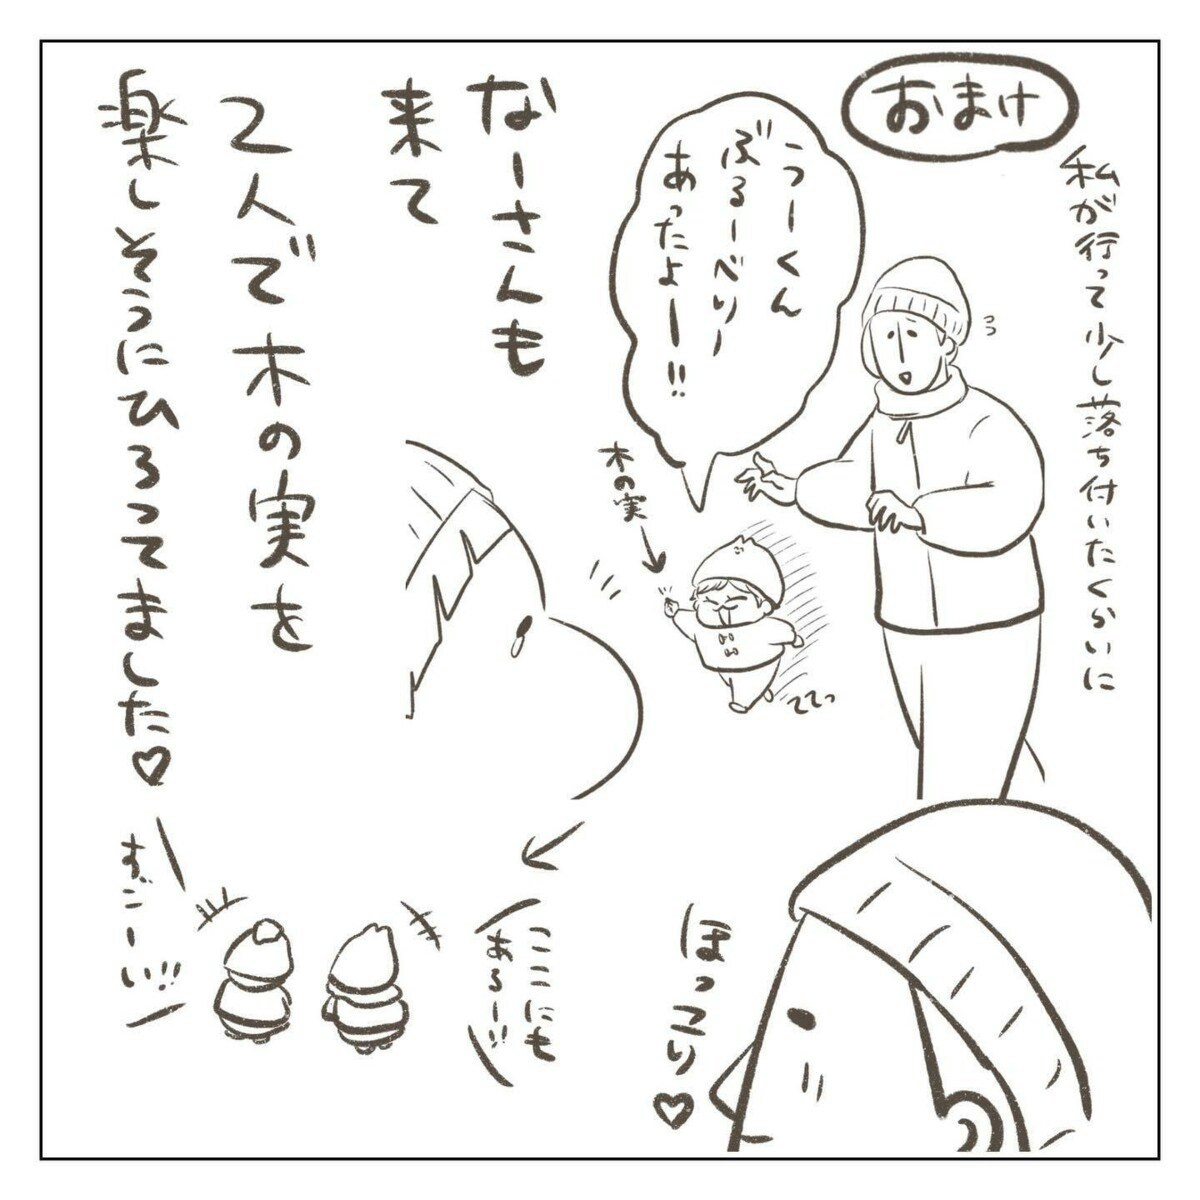 おまけ
私が行って少し落ち付いたくらいに
うーくん
ぶるーべりー
あったよー!!
木の実
ててっ
なーさんも
来て
2人で木の実を
楽しそうにひろってました♡
ここにも
あるー!!
すごーい!!
ほっこり♡